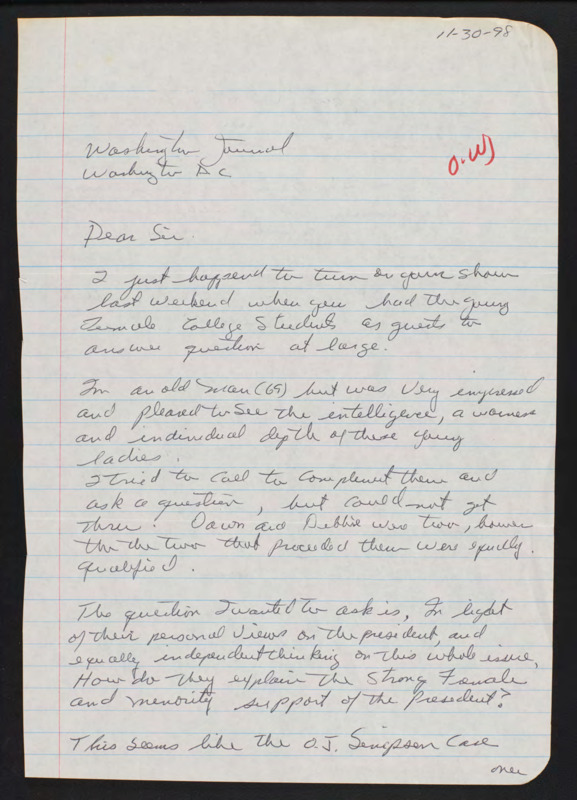 11-30-98
Washington Journal
Washington DC
O.W)
Dear Sir.
I just happend to turn on your show
last weekend when you had the young
Female College Students as guests to
answer question at large.
Im an old man (69) but was very impressed
and pleased to see the intelligence, a warness
and individual depth of these young
ladies.
I tried to call to complement them and
ask a question, but could not get
thru! Dawn and Debbie were two, however
the the two that preceeded them were equally.
qualified.
The question I wanted to ask is, In light
of their personal views on the president, and
equally independent thinking on this whole issue,
How do they explain the Strong Female
and menority support of the President?
This seems like the O.J. Simpson Case
over